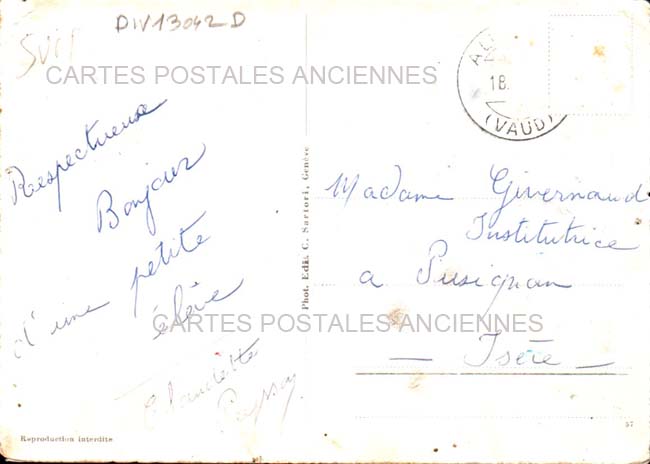 DIV13042D
CARTES POSTALES ANCIENNES
18.
(VAUD)
Respectueuse
Bonjour
d'une petite
élève
Claudette
Madame Givernaud
Institutrice
a Pusignan
— Isère —
CARTES POSTALES ANCIENNES
Phot. Edit. C. Sartori, Genève
Reproduction interdite
57